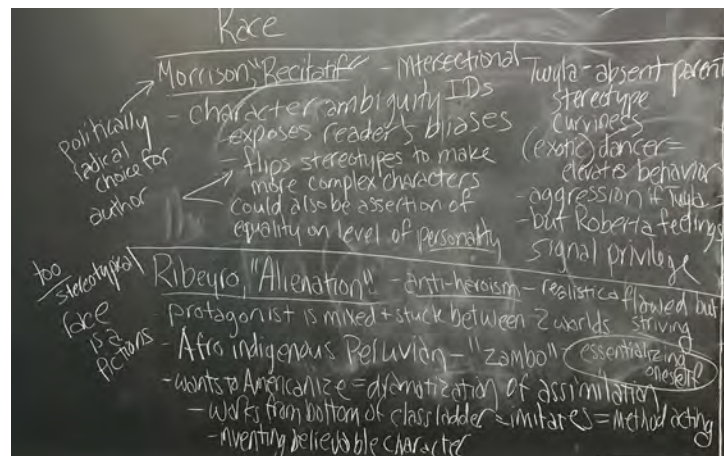 Race
Morrison, "Recitatif" - Intersectional
IDs
- character ambiguity
exposes reader's biases
- flips stereotypes to make
more complex characters
could also be assertion of
equality on level of personality
politically
radical
choice for
author
Twyla - absent parent
stereotype
curviness
(exotic) dancer =
elevates behavior
- aggression if Twyla
- but Roberta feelings
signal privilege
Ribeyro, "Alienation" - anti-heroism - realistic flawed but
striving
- protagonist is mixed + stuck between 2 worlds
- Afro indigenous Peruvian - "zambo" - essentializing
oneself
- wants to Americanize = dramatization of assimilation
- works from bottom of class ladder - imitates = method acting
- inventing believable character
too
stereotypical
race
is a
fictions